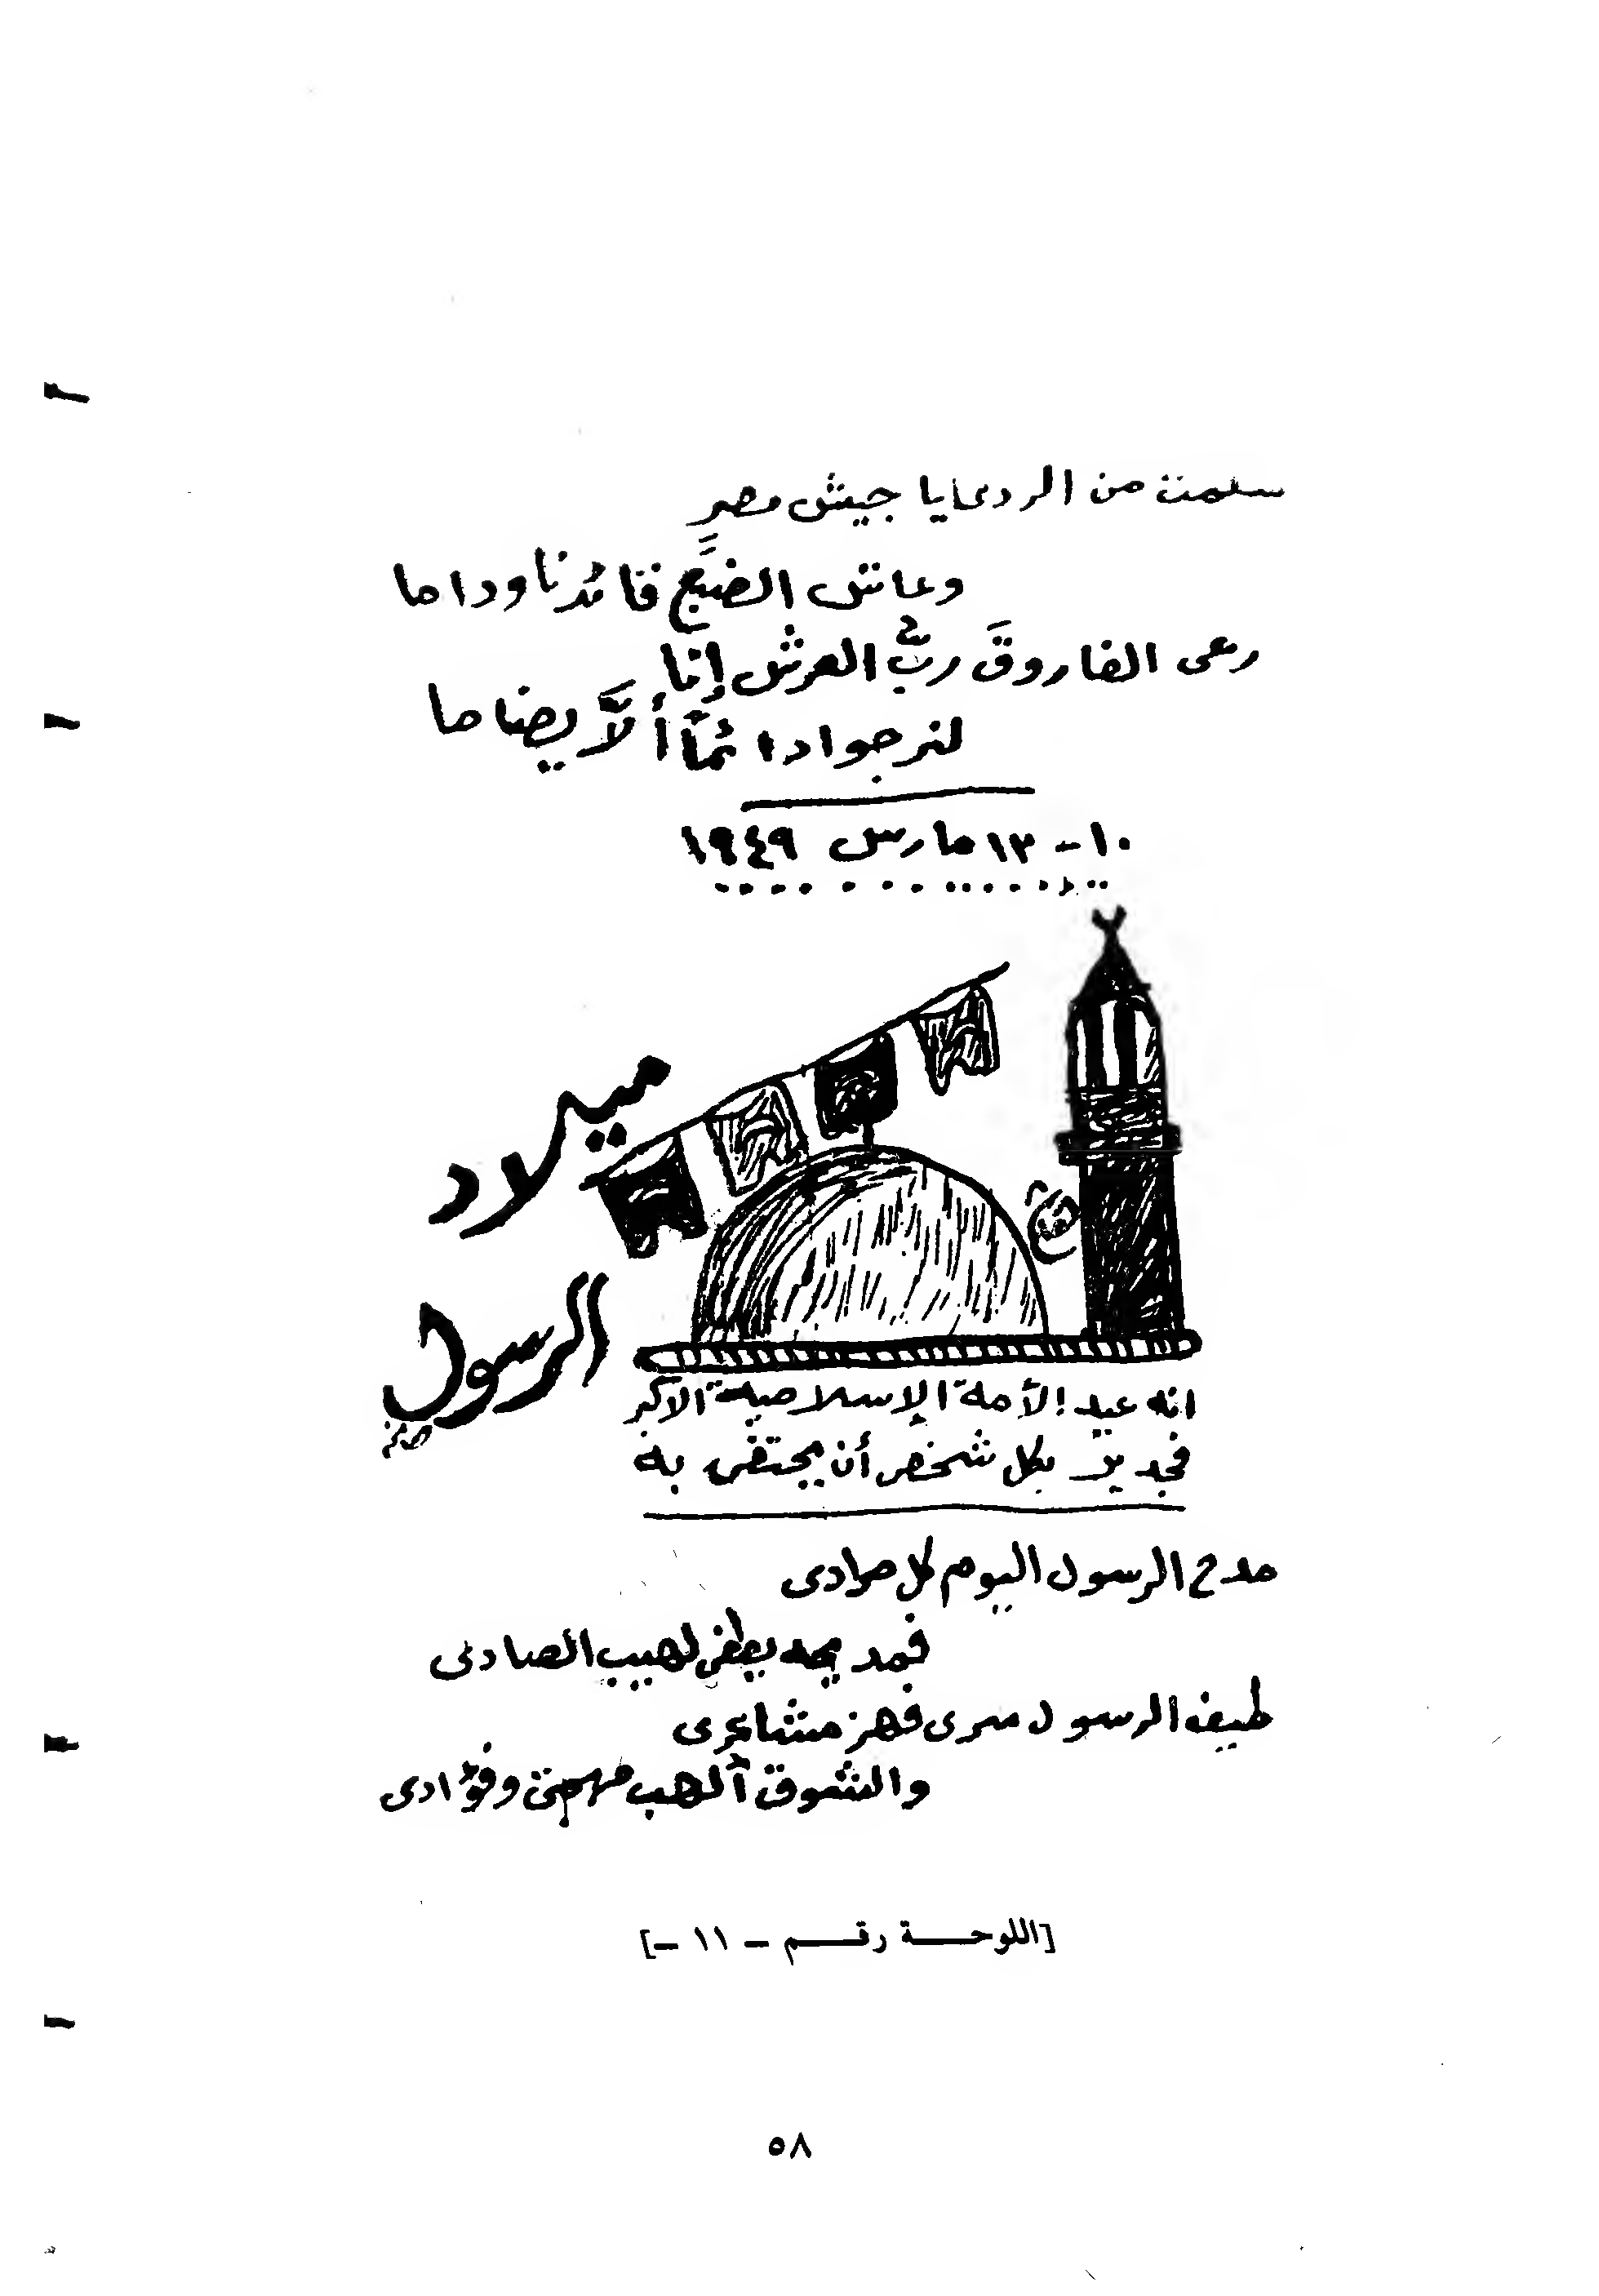 سلمت من الردى يا جيش مصرٍ
وعاش الضبَع قائدُنا وداما
رعى الفاروقَ ربُّ العرش إنا
لنرجوا دائماً ألاَّ يضاما
١٠- ١٣ مارس ١٩٤٩
ميلاد
الرسول
انه عيد الأمة الإسلامية الأكبر
فجدير بكل شخص أن يحتفى به
مدح الرسول اليوم كل مرادى
فمديحه يطفى لهيب الصادى
طيف الرسول سرى فهز مشاعرى
والشوق ألهب مهجتى وفؤادى
[اللوحـــة رقـــم – ١١ –]
٥٨